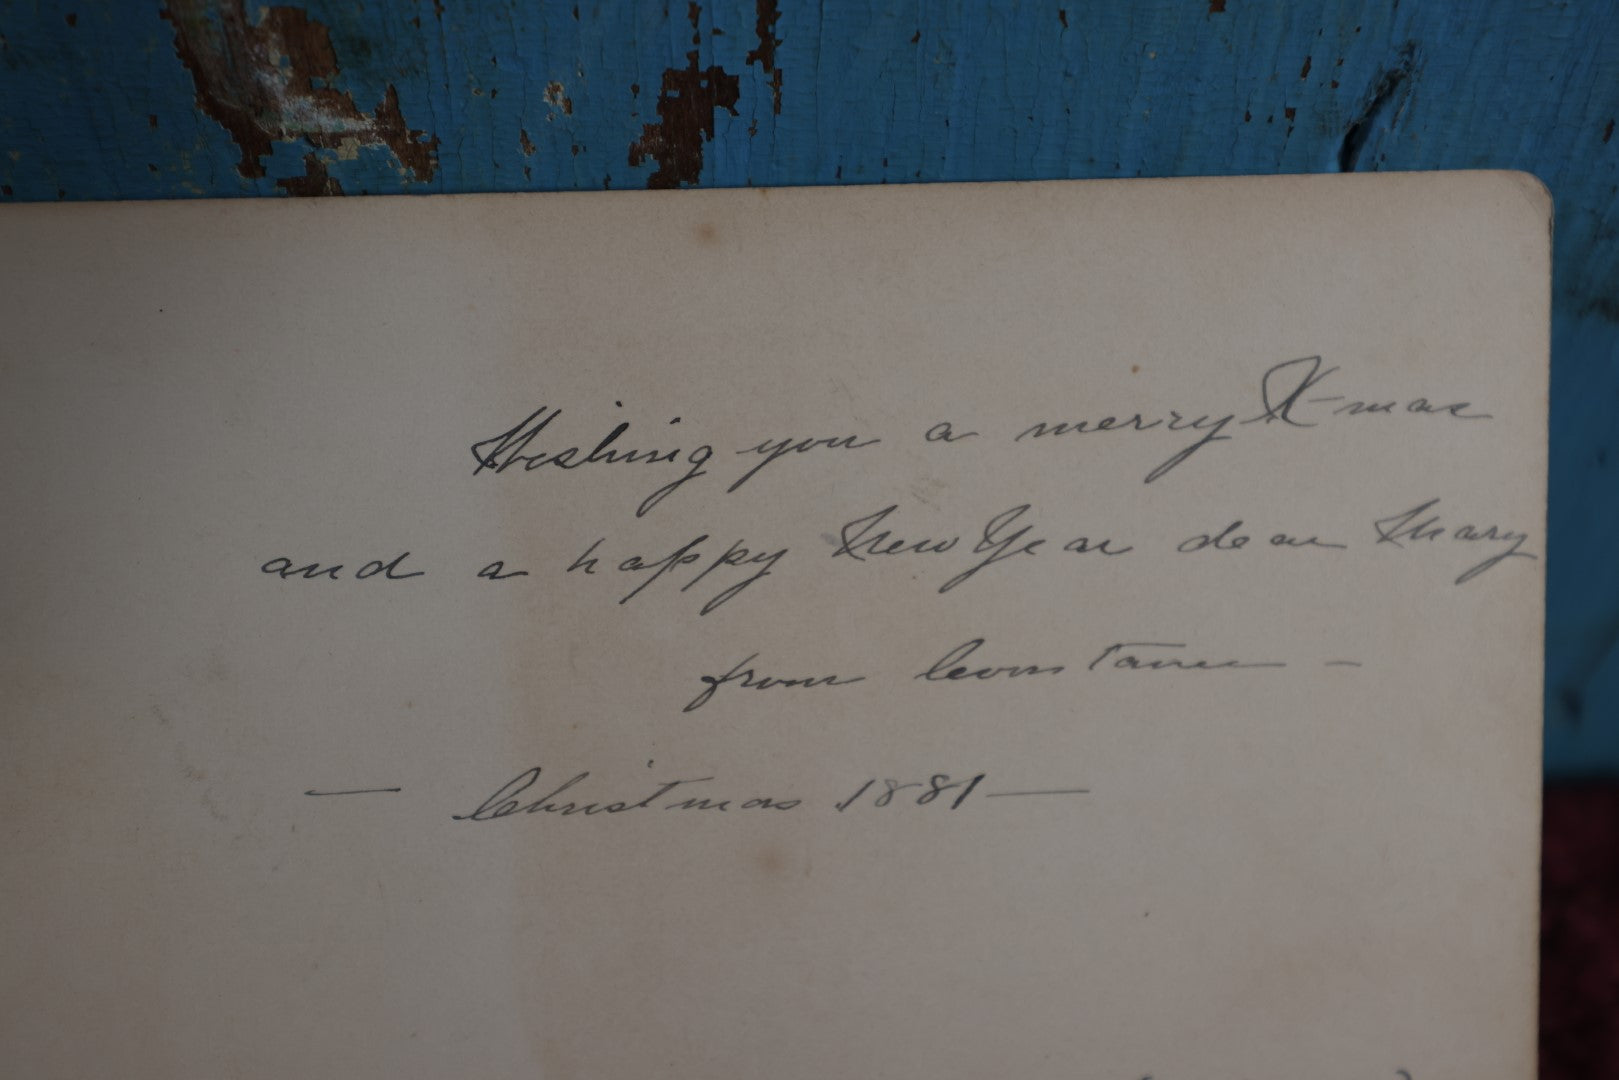 Wishing you a merry X-mas
and a happy New Year dear Mary
from Constance –
— Christmas 1881 —